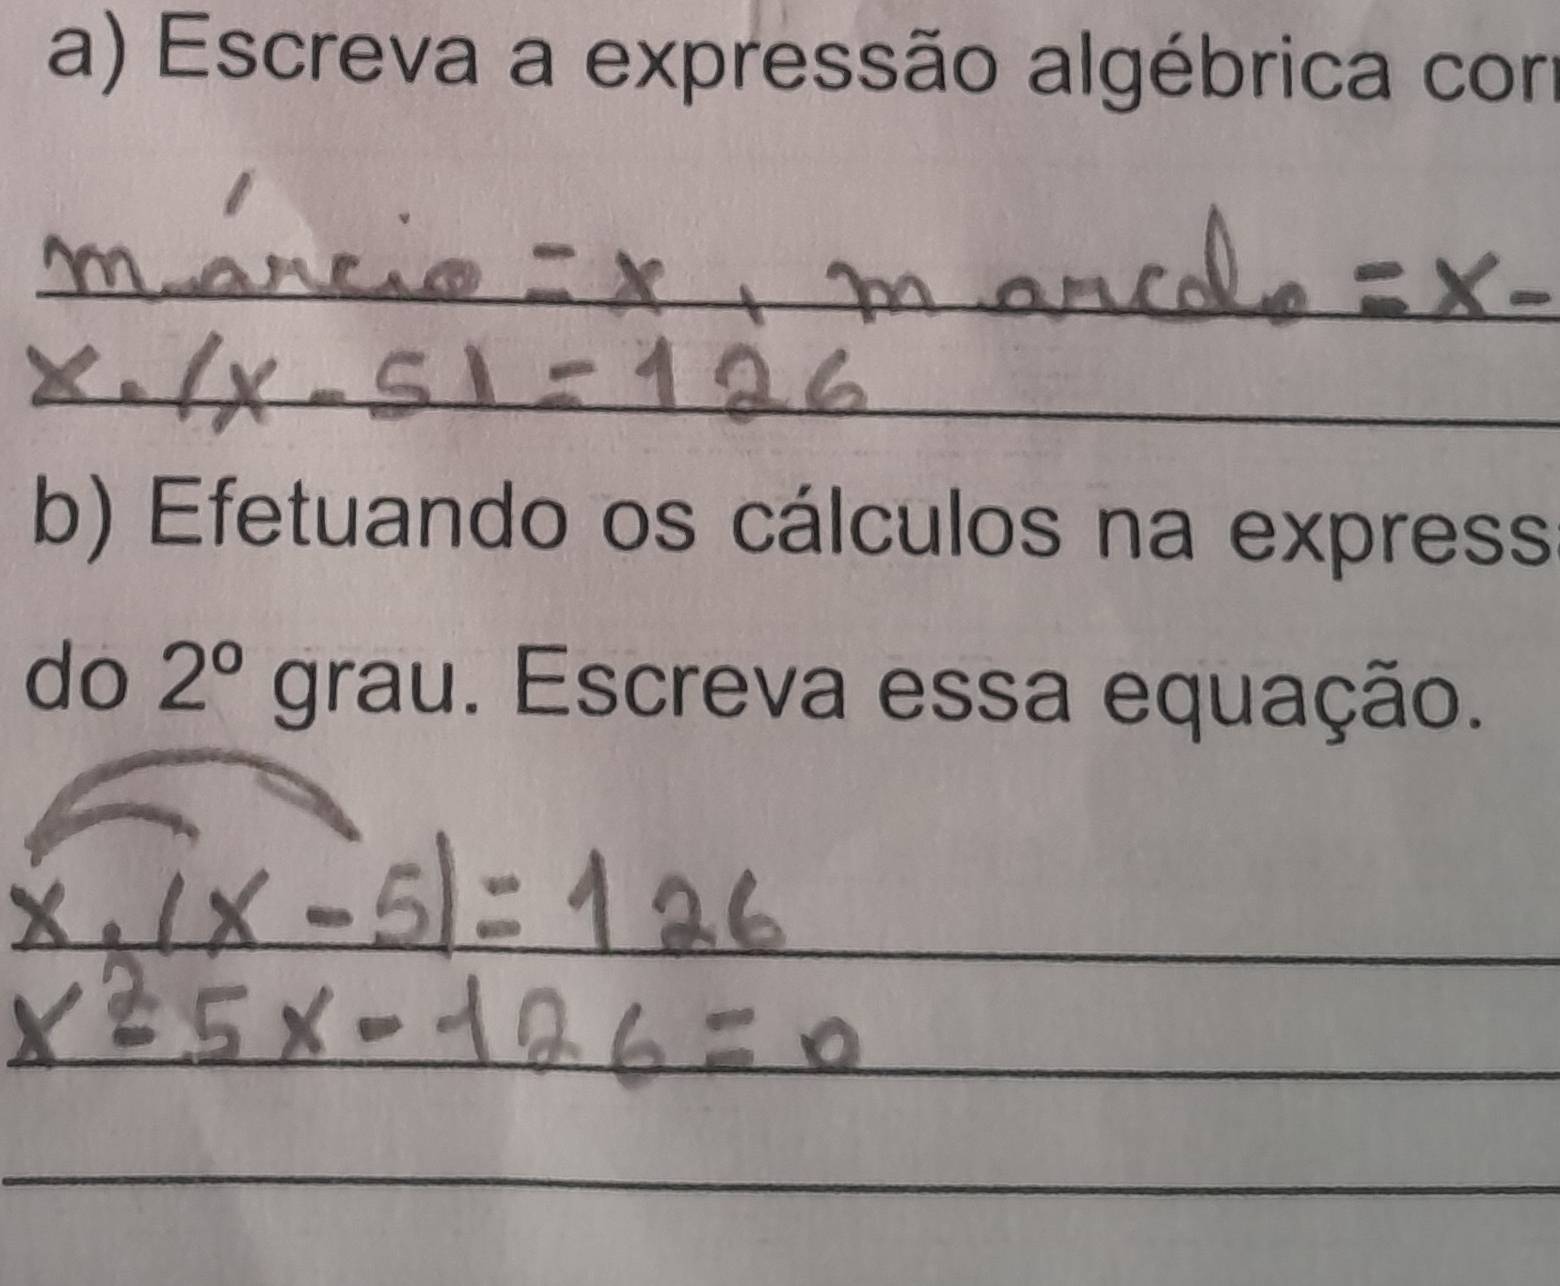 a) Escreva a expressão algébrica cor
márcio = x, marcelo = x -
x . (x - 5) = 126
b) Efetuando os cálculos na express
do 2º grau. Escreva essa equação.
x . (x - 5) = 126
x² - 5x - 126 = 0